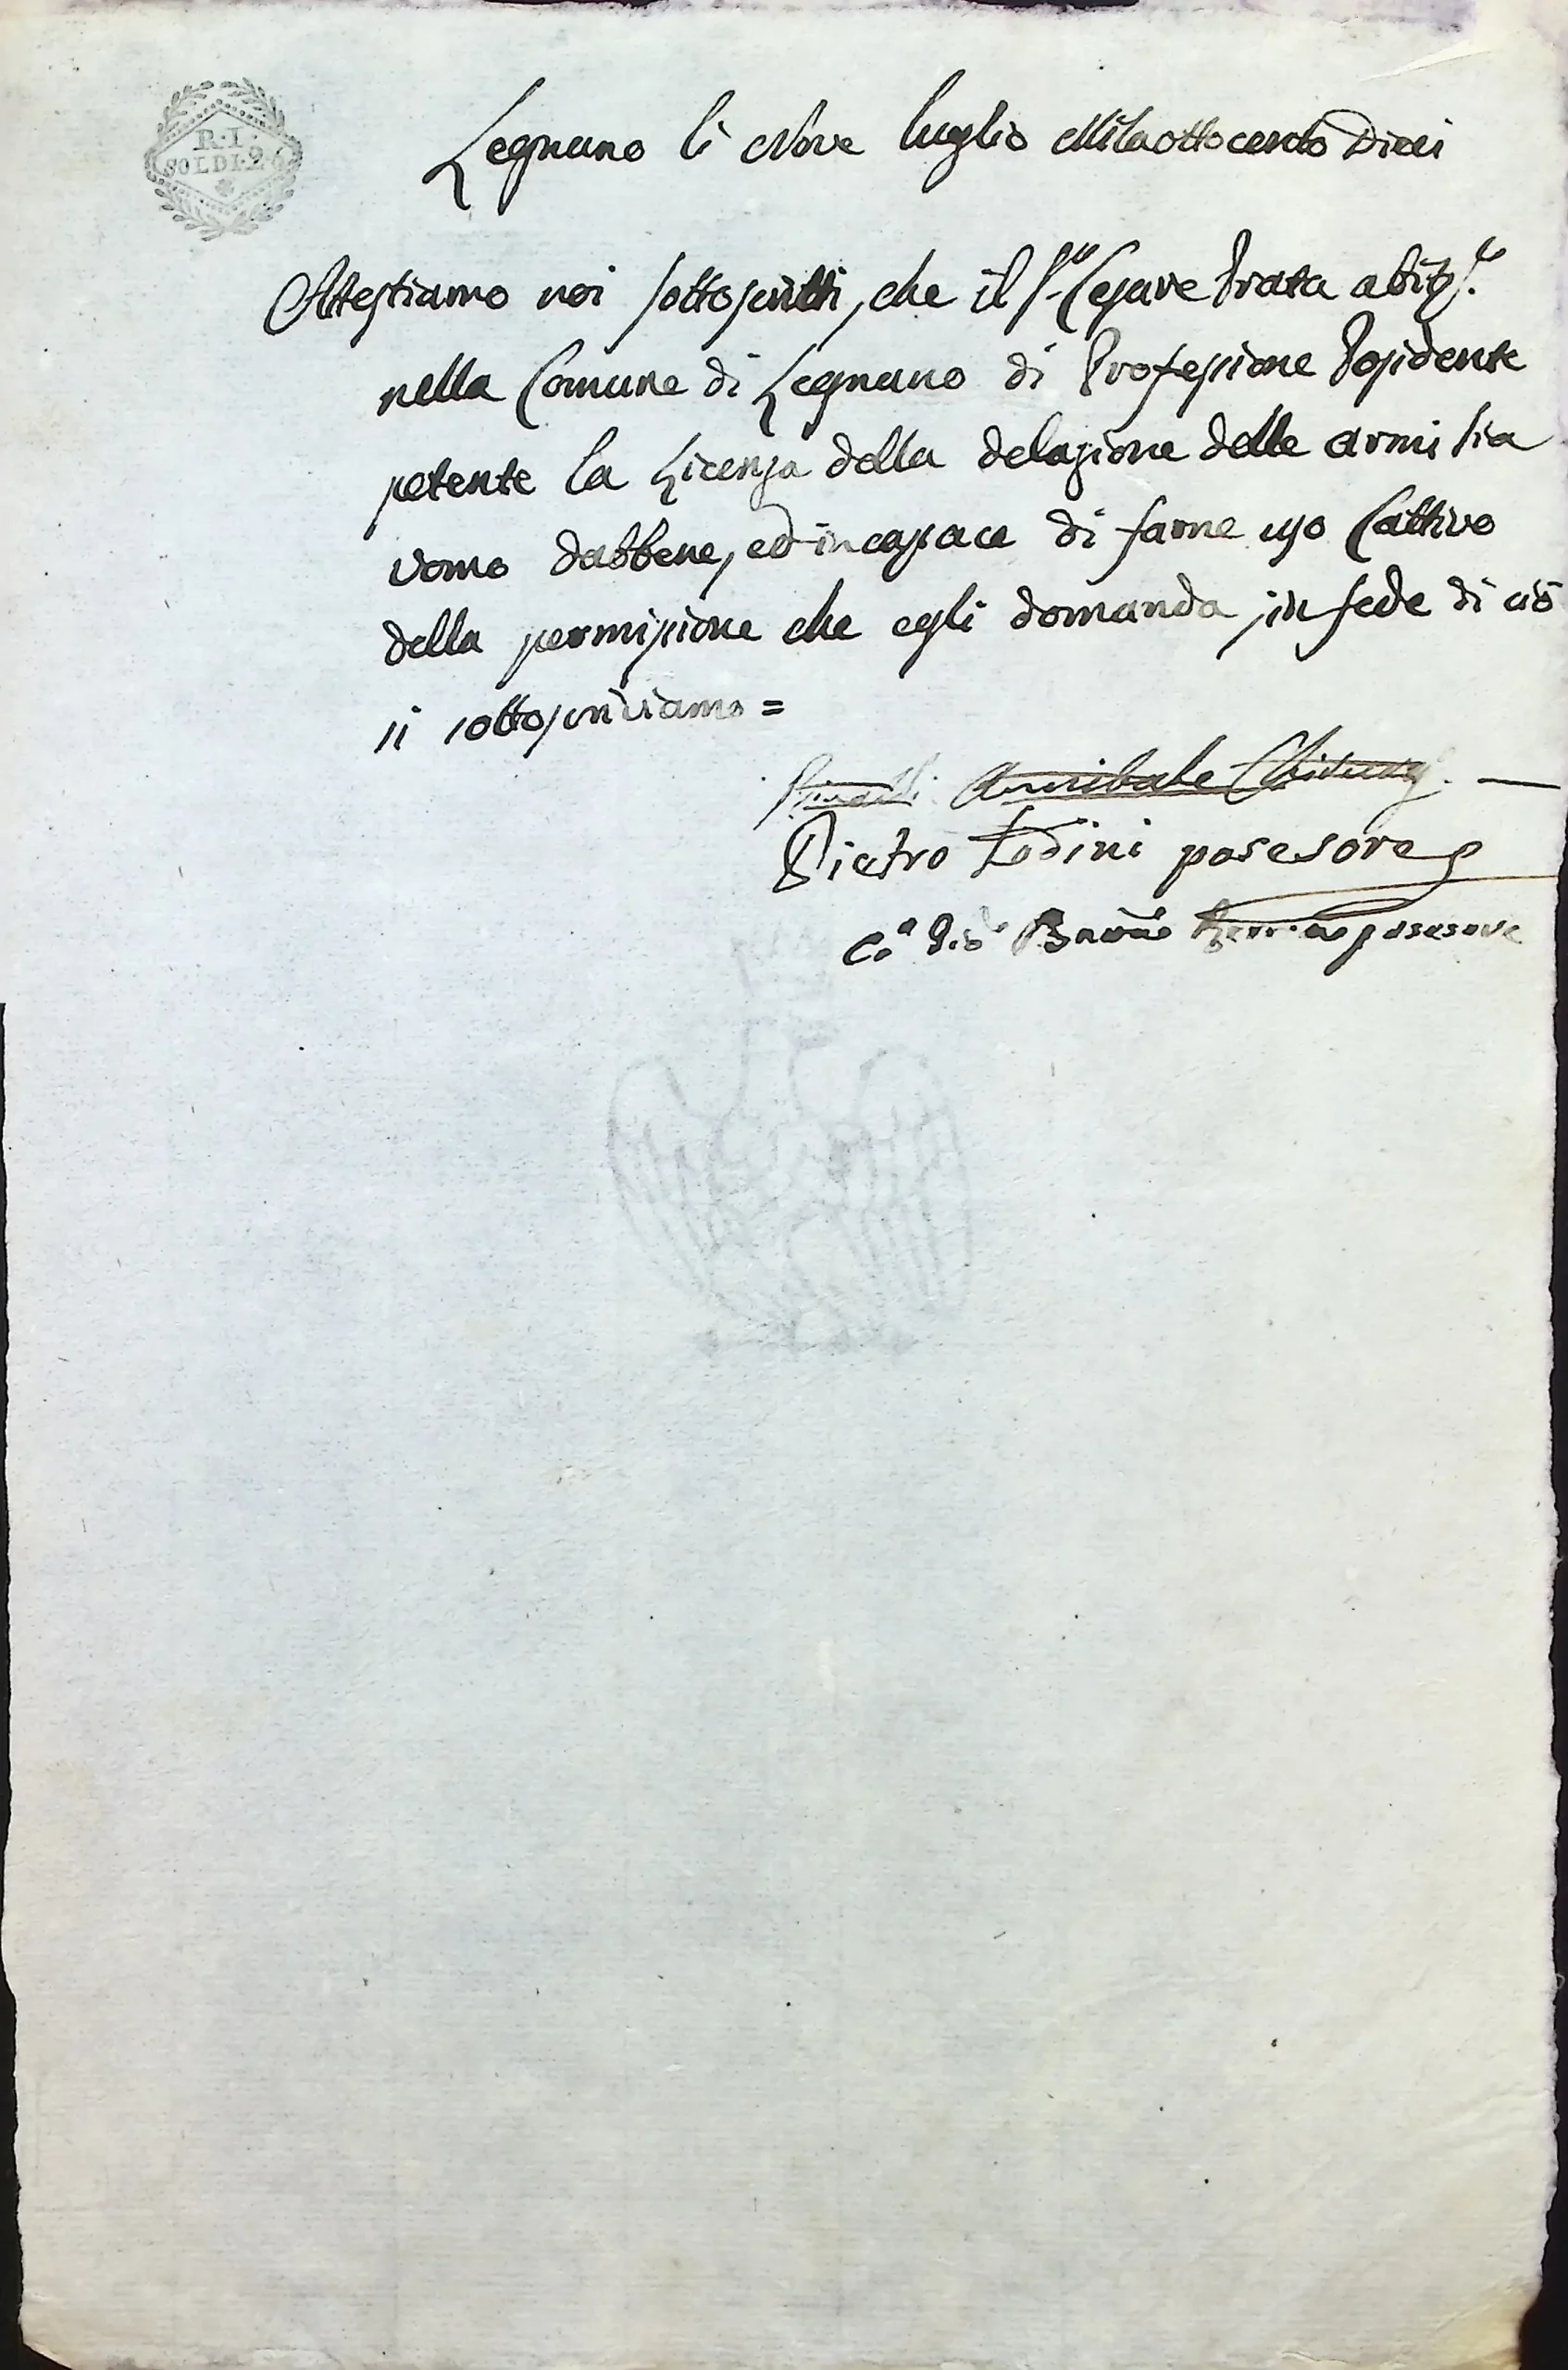 R. I.
SOLDI. 26
Legnano li Nove luglio Millaottocento Dieci
Attestiamo noi sottoscritti, che il S.r Cesare Prata abit.te
nella Comune di Legnano di Professione Possidente
petente la Licenza della delazione delle armi sia
uomo dabbene, ed incapace di farne uso Cattivo
della permissione che egli domanda, in fede di ciò
si sottoscriviamo =
Annibale
Pietro Lodini posesore
posesore